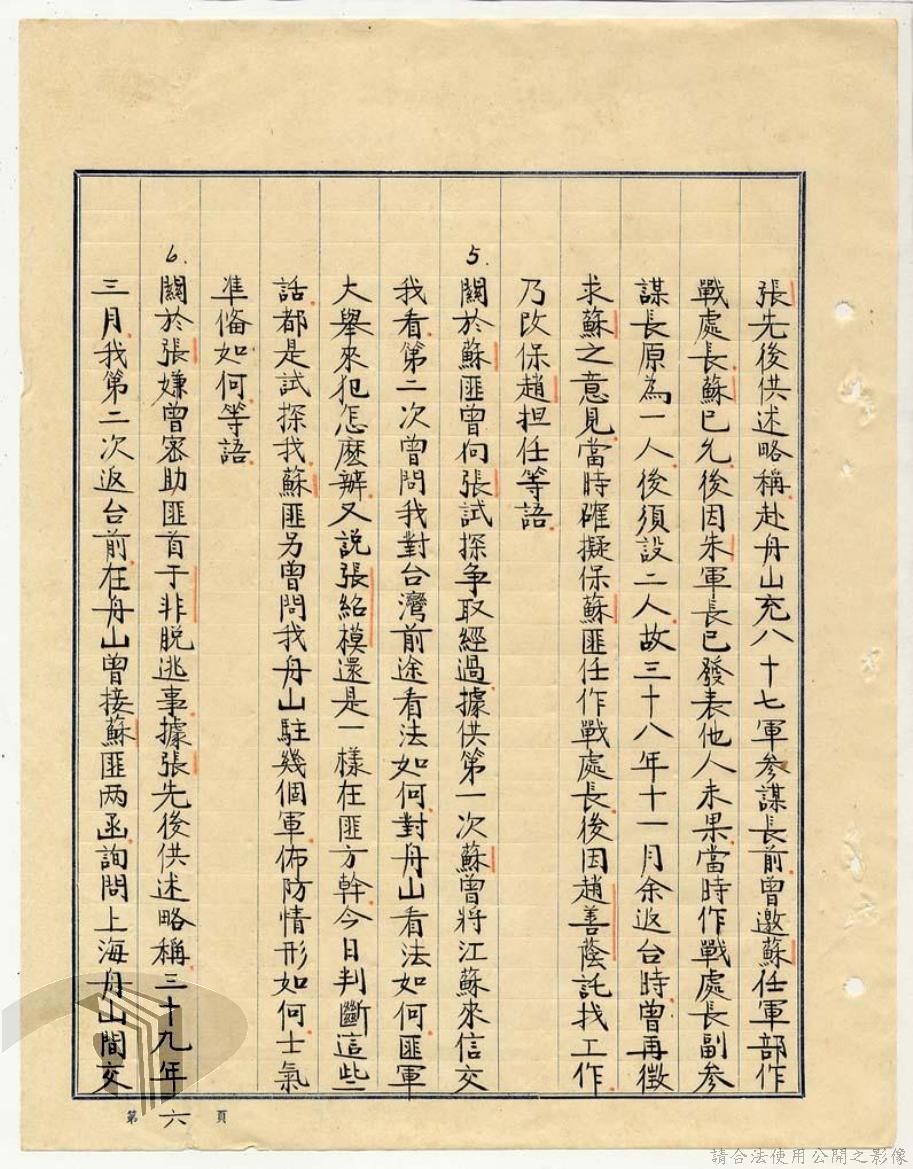 張先後供述略稱赴舟山充八十七軍參謀長前曾邀蘇任軍部作
戰處長蘇已允後因朱軍長已發表他人未果當時作戰處長副參
謀長原為一人後須設二人故三十八年十一月余返台時曾再徵
求蘇之意見當時確擬保蘇匪任作戰處長後因趙善蔭託找工作
乃改保趙担任等語
5. 關於蘇匪曾向張試探爭取經過據供第一次蘇曾將江蘇來信交
我看第二次曾問我對台灣前途看法如何對舟山看法如何匪軍
大舉來犯怎麼辦又說張紹模還是一樣在匪方幹今日判斷這些
話都是試探我蘇匪另曾問我舟山駐幾個軍佈防情形如何士氣
準備如何等語
6. 關於張嫌曾密助匪首于非脫逃事據張先後供述略稱三十九年
三月我第二次返台前在舟山曾接蘇匪两函詢問上海舟山間交
第六頁
請合法使用公開之影像